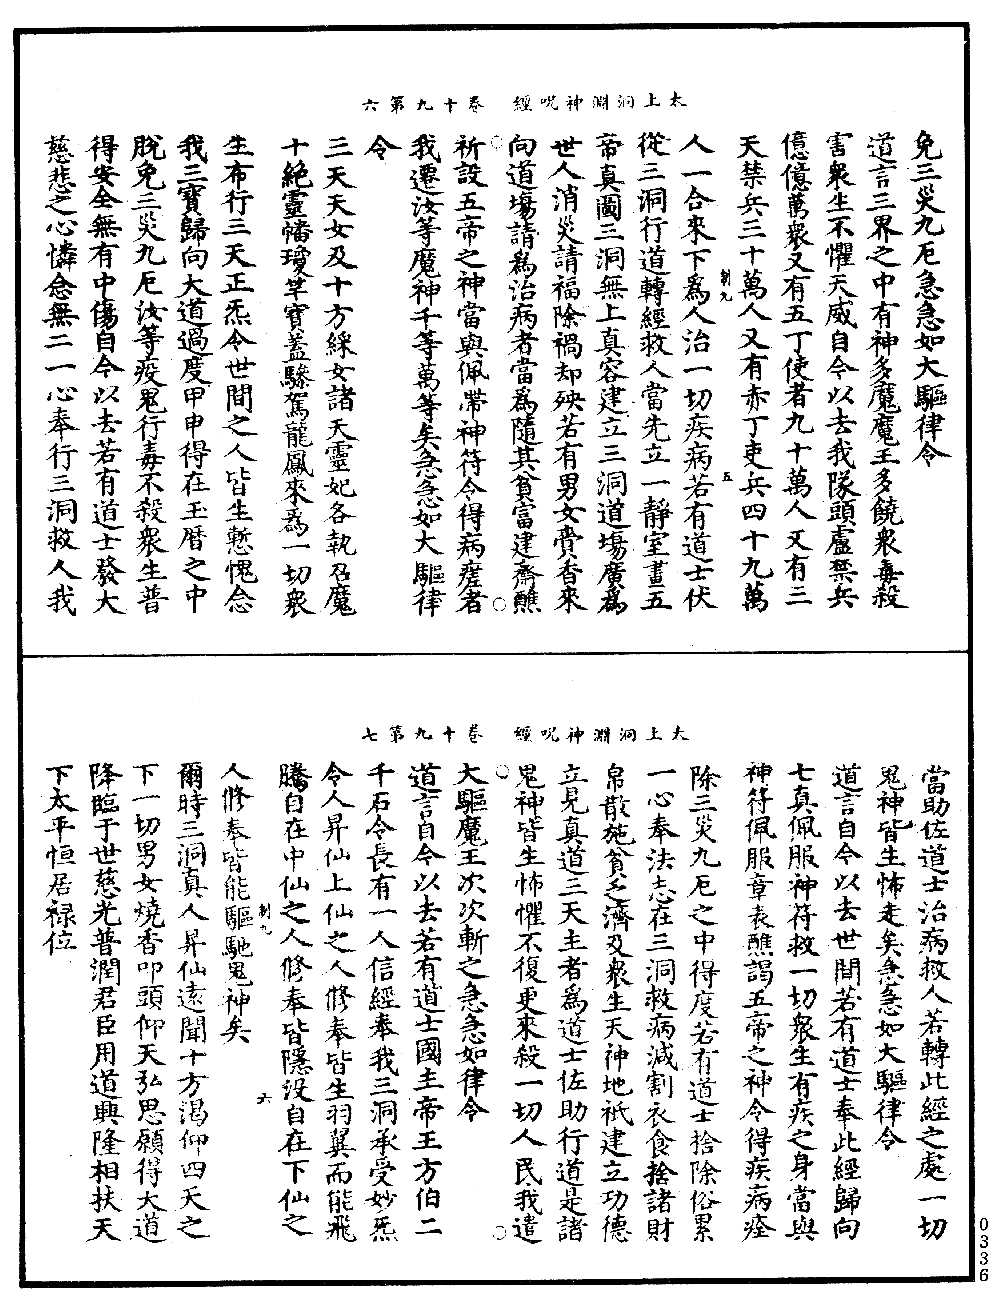 太上洞淵神呪經　卷十九第六
免三災九厄急急如大驅律令
道言三界之中有神多魔魔王多饒衆毒殺
害衆生不懼天威自今以去我隊頭盧禁兵
億億萬衆又有五丁使者九十萬人又有三
天禁兵三十萬人又有赤丁吏兵四十九萬
制九　五
人一合來下為人治一切疾病若有道士伏
從三洞行道轉經救人當先立一靜室畫五
帝真圖三洞無上真容建立三洞道場廣為
世人消災請福除禍却殃若有男女賫香來
向道場請為治病者當為隨其貧富建齋醮
祈設五帝之神當與佩帶神符令得病瘥者
我遷汝等魔神千等萬等矣急急如大驅律
令
三天天女及十方綵女諸天靈妃各執召魔
十絕靈幡瓊竿寶蓋驂駕龍鳳來為一切衆
生布行三天正炁令世間之人皆生慙愧念
我三寶歸向大道過度甲申得在王曆之中
脫免三災九厄汝等疫鬼行毒不殺衆生普
得安全無有中傷自今以去若有道士發大
慈悲之心憐念無二一心奉行三洞救人我
太上洞淵神呪經　卷十九第七
當助佐道士治病救人若轉此經之處一切
鬼神皆生怖走矣急急如大驅律令
道言自今以去世間若有道士奉此經歸向
七真佩服神符救一切衆生有疾之身當與
神符佩服章表醮謁五帝之神令得疾病痊
除三災九厄之中得度若有道士捨除俗累
一心奉法志在三洞救病減割衣食捨諸財
帛散施貧乏濟及衆生天神地祇建立功德
立見真道三天主者為道士佐助行道是諸
鬼神皆生怖懼不復更來殺一切人民我遣
大驅魔王次次斬之急急如律令
道言自今以去若有道士國主帝王方伯二
千石令長有一人信經奉我三洞承受妙炁
令人昇仙上仙之人修奉皆生羽翼而能飛
騰自在中仙之人修奉皆隱沒自在下仙之
制九　六
人修奉皆能驅馳鬼神矣
爾時三洞真人昇仙遠聞十方渴仰四天之
下一切男女燒香叩頭仰天弘思願得大道
降臨于世慈光普潤君臣用道興隆相扶天
下太平恒居祿位
0336